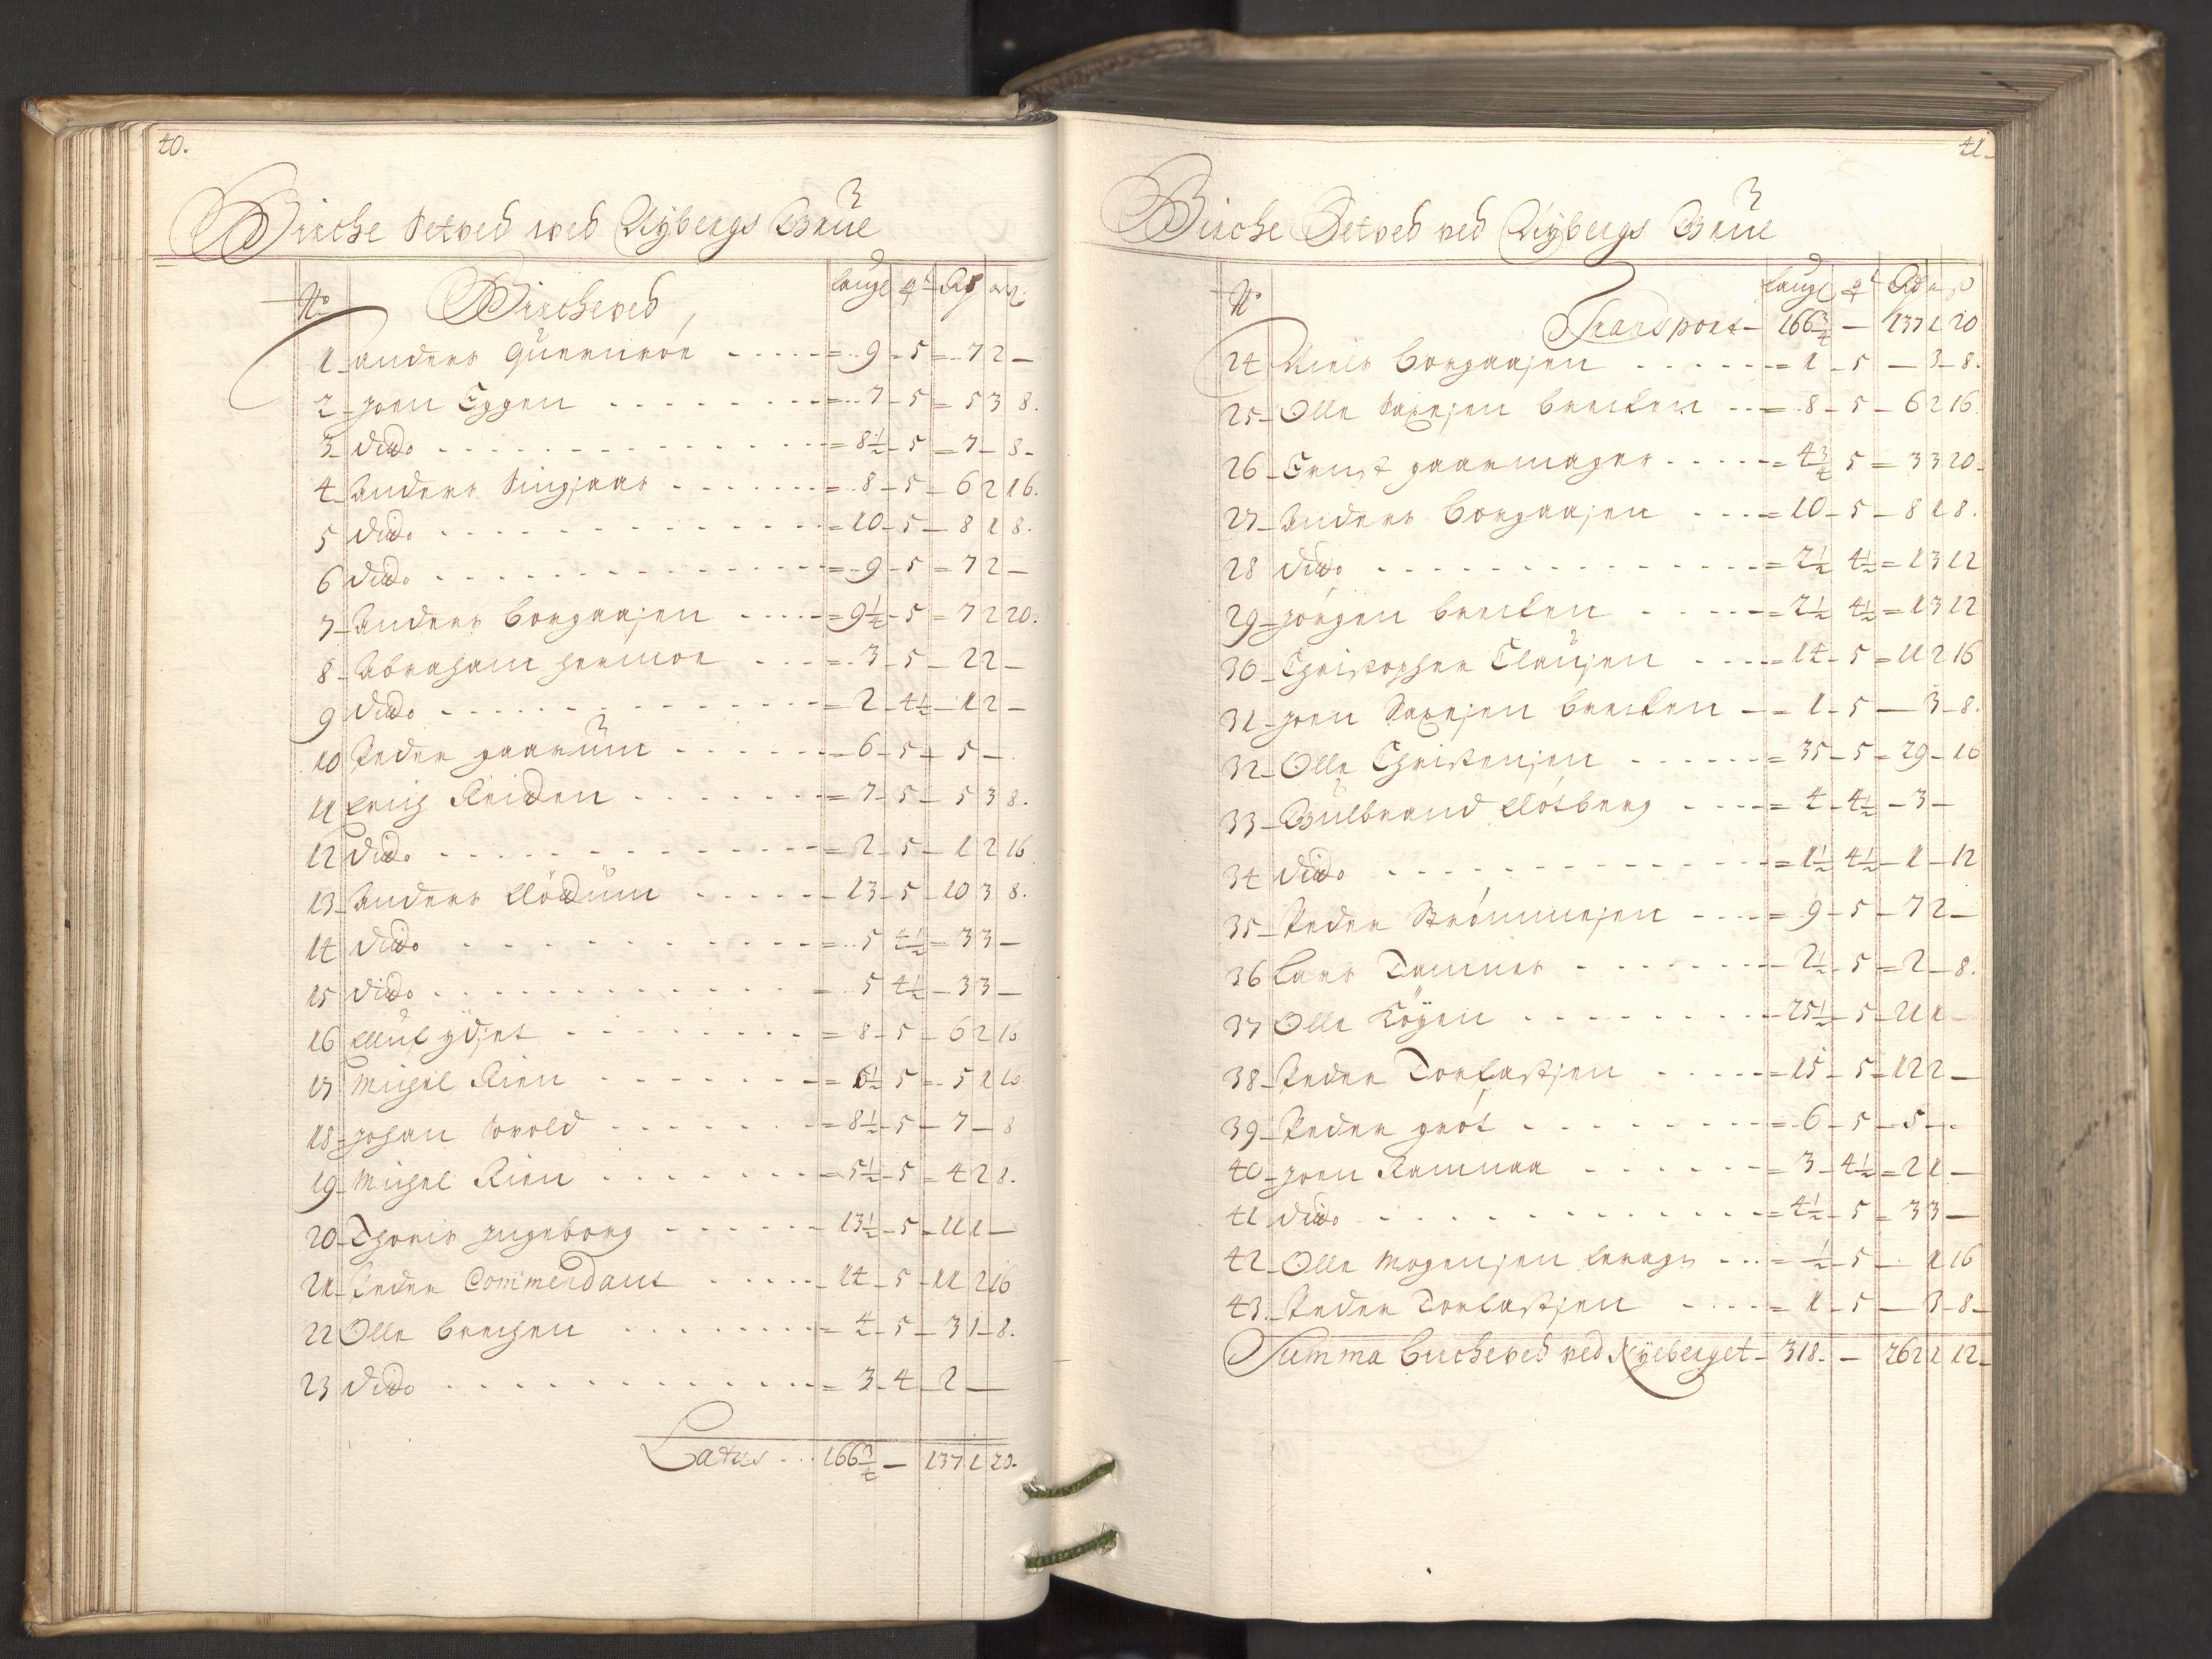 40.
Birche Setved wed Nÿbergs Grue
No Bircheved laugl qt Rd
1 Anders 9 5 7 2 —
2 Joen Eggen 7 5 5 3 8.
3 dido 8½ 5 7 — 8
4 Anders Singsaas 8 5 6 2 16.
5 dido 10 5 8 1 8.
6 dido 9 5 7 2 —
7 Anders Borgaasen 9¼ 5 7 2 20.
8 Abraham 3 5 2 2 —
9 dido 2 4½ 1 2 —
10 Peder 6 5 5 —
11 Erich Reiden 7 5 5 3 8.
12 dido 2 5 1 2 16
13 Anders Flödum 13 5 10 3 8.
14 dido 5 4½ 3 3 —
15 dido 5 4½ 3 3 —
16 8 5 6 2 16
17 Michel Rien 6½ 5 5 1 16
18 Johan 8½ 5 7 — 8
19 Michel Rien 5½ 5 4 2 8.
20 Thoris Ingeborg 13½ 5 11 1 —
21 Peder Commendant 14 5 11 2 16
22 Olle 4 5 3 1 8.
23 dido 3 4 2 —
Latus 166¾ — 137 1 20.
41
Birche Setved ved Nÿbergs Grue
No laugl qt Rd
Transport 166¾ — 137 1 20
24 Niels Borgaasen 1 5 — 3 8.
25 Olle 8 5 6 2 16
26 Ernst 4¾ 5 3 3 20
27 Anders Borgaasen 10 5 8 1 8.
28 dido 2½ 4½ 1 3 12
29 Jörgen 2½ 4½ 1 3 12
30 Christopher Clausen 14 5 11 2 16
31 Joen 1 5 — 3 8.
32 Olle Christensen 35 5 29 — 16
33 Gulbrand Flötberg 4 4½ 3 —
34 dido 1½ 4½ 1 — 12
35 Peder 9 5 7 2 —
36 Lars Tamnes 2½ 5 2 — 8.
37 Olle 25½ 5 21 1 —
38 Peder Torlastsen 15 5 12 2 —
39 Peder 6 5 5 —
40 Joen 3 4½ 2 1 —
41 dido 4½ 5 3 3 —
42 Olle Mogensen ½ 5 1 16
43 Peder Torlastsen 1 5 — 3 8
Summa Bircheved ved Nyeberget 318. — 262 1 12